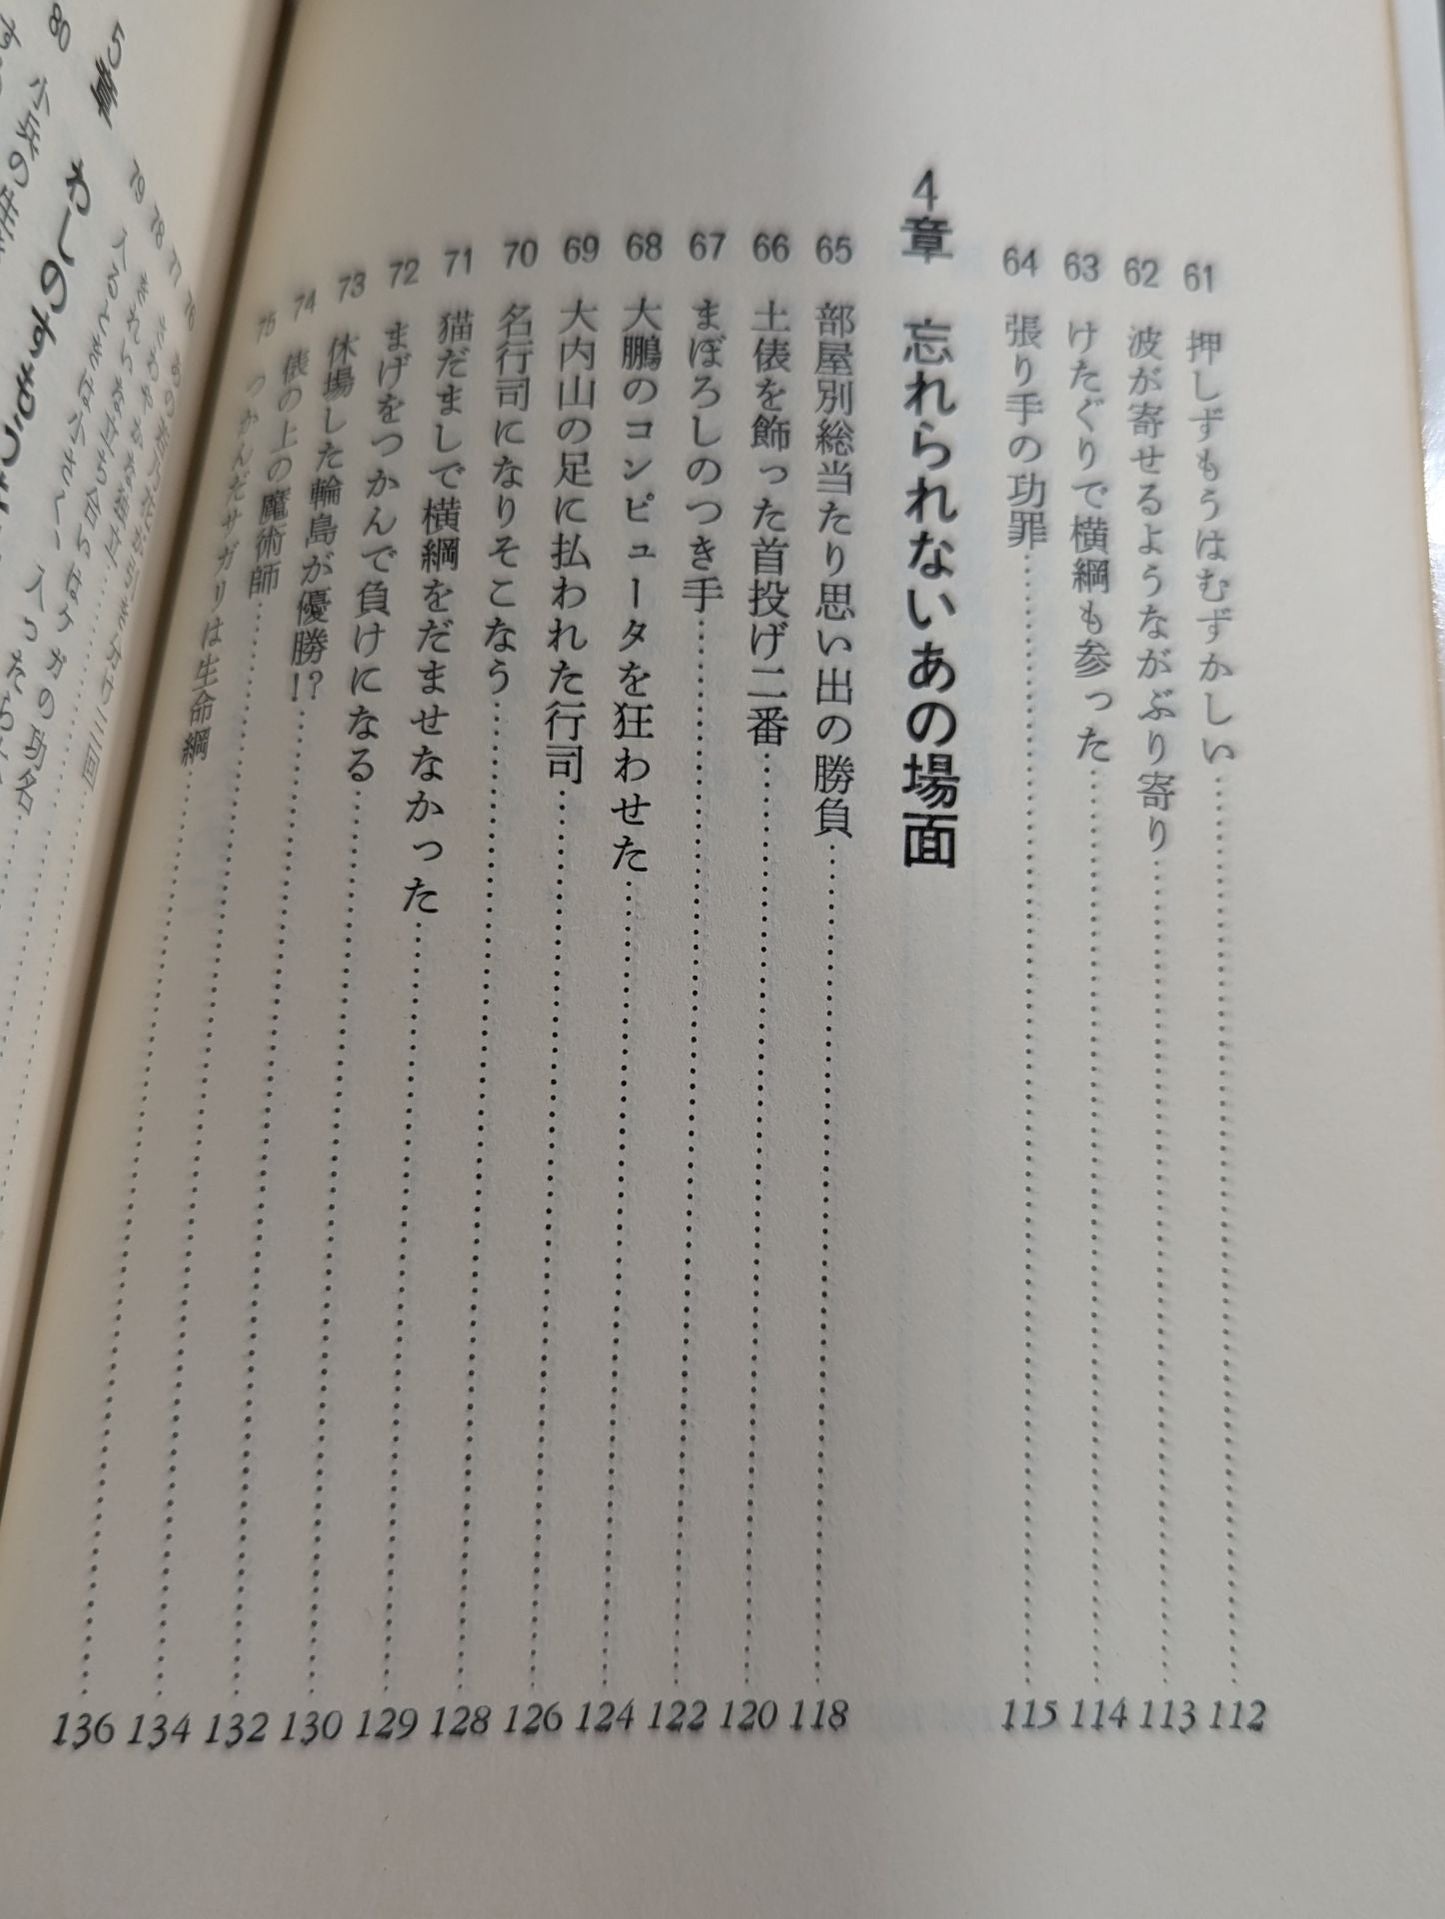 61 押しずもうはむずかしい……112
62 波が寄せるようながぶり寄り……113
63 けたぐりで横綱も参った……114
64 張り手の功罪……115
4章 忘れられないあの場面
65 部屋別総当たり思い出の勝負……118
66 土俵を飾った首投げ二番……120
67 まぼろしのつき手……122
68 大鵬のコンピュータを狂わせた……124
69 大内山の足に払われた行司……126
70 名行司になりそこなう……128
71 猫だましで横綱をだませなかった……129
72 まげをつかんで負けになる……130
73 休場した輪島が優勝!?……132
74 俵の上の魔術師……134
75 つかんだサガリは生命綱……136
76
77
78
79
5章 わしのすもう
80